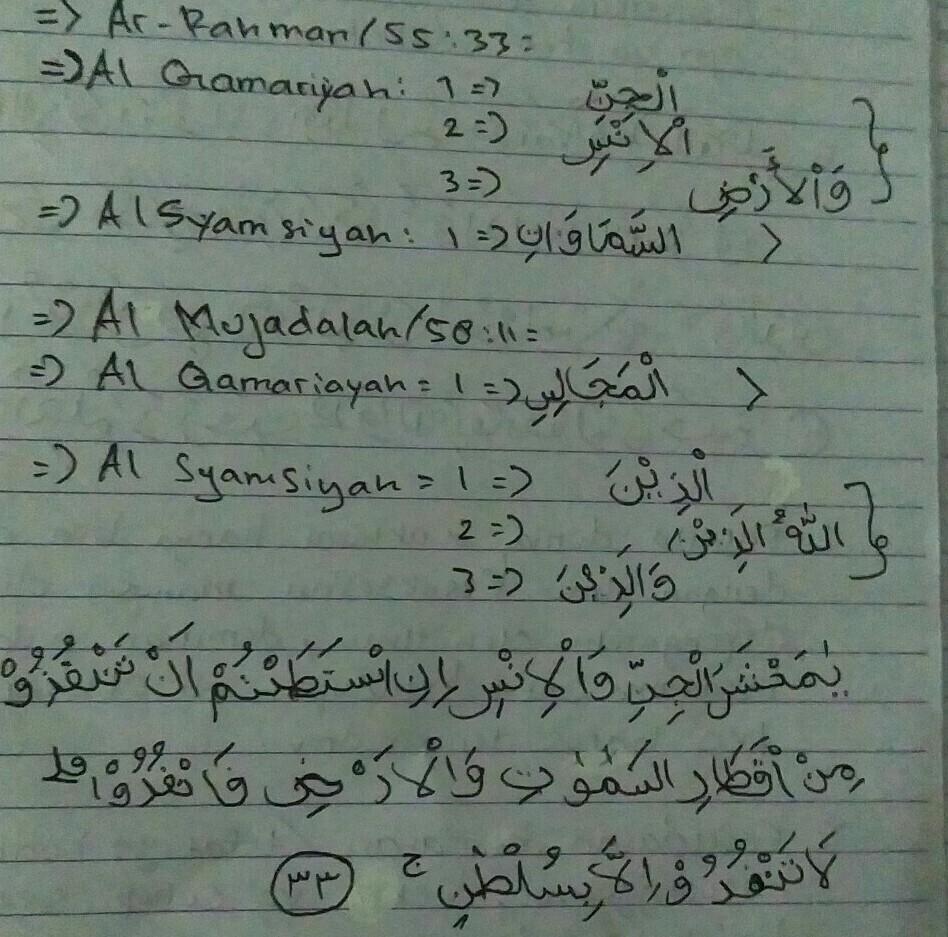 => Ar-Rahman/55:33=
=> Al Qamariyah: 1 => الْجِنِّ
2 => الْاِنْسِ
3 => وَالْأَرْضِ
=> Al Syamsiyah: 1 => السَّمَاوَاتِ
=> Al Mujadalah/58:11=
=> Al Qamariayah = 1 => الْمَجَالِسِ
=> Al Syamsiyah = 1 => الْذِيْنَ
2 => اللّٰهُ الَذِيْنَ
3 => وَالَذِيْنَ
يٰمَعْشَرَ الْجِنِّ وَالْاِنْسِ اِنِ اسْتَطَعْتُمْ اَنْ تَنْفُذُوْ
مِنْ اَقْطَارِ السَمٰوٰتِ وَالْاَرْضِ فَانْفُذُوْا ۗ
لَا تَنْفُذُوْنَ اِلَّا بِسُلْطٰنٍ ج ٣٣